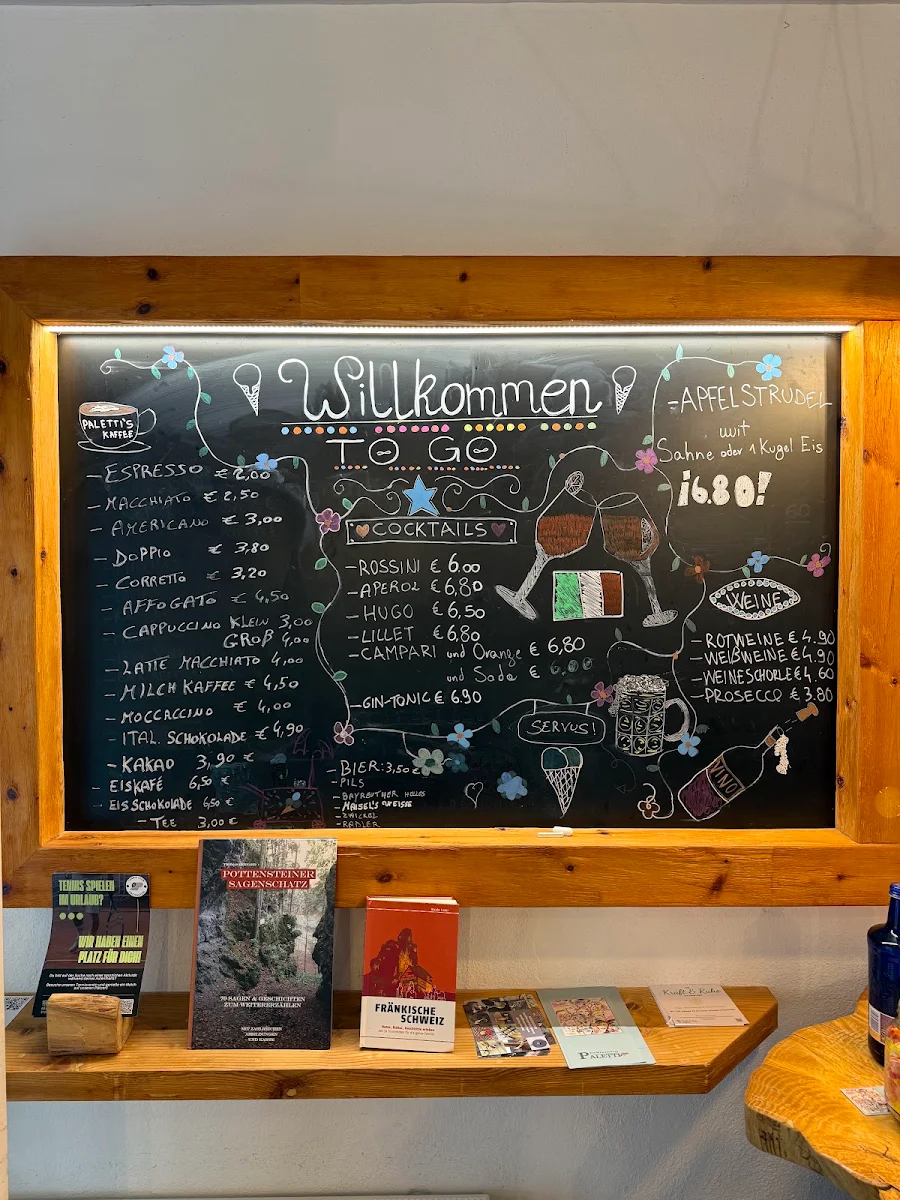 Willkommen
TO GO
PALETTI'S
KAFFEE
- ESPRESSO € 2,00
- MACCHIATO € 2,50
- AMERICANO € 3,00
- DOPPIO € 3,80
- CORRETTO € 3,20
- AFFOGATO € 4,50
- CAPPUCCINO KLEIN 3,00
GROß 4,00
- LATTE MACCHIATO 4,00
- MILCH KAFFEE € 4,50
- MOCCACCINO € 4,00
- ITAL. SCHOKOLADE € 4,90
- KAKAO 3,90 €
- EISKAFÉ 6,50 €
- EISSCHOKOLADE 6,50 €
- TEE 3,00 €
COCKTAILS
- ROSSINI € 6.00
- APEROL € 6,80
- HUGO € 6,50
- LILLET € 6,80
- CAMPARI und Orange € 6,80
und Soda € 6,00
- GIN-TONIC € 6.90
SERVUS!
- BIER: 3,50 €
- PILS
- BAYREUTHER HELLES
- MAISEL'S WEISSE
- ZWICKEL
- RADLER
- APFELSTRUDEL
mit
Sahne oder 1 Kugel Eis
¡6.80!
WEINE
- ROTWEINE € 4.90
- WEIßWEINE € 4.90
- WEINESCHORLE € 4.60
- PROSECCO € 3.80
VINO
TENNIS SPIELEN
IM URLAUB?
WIR HABEN EINEN
PLATZ FÜR DICH!
POTTENSTEINER
SAGENSCHATZ
70 SAGEN & GESCHICHTEN
ZUM WEITERERZÄHLEN
MIT ZAHLREICHEN
ABBILDUNGEN
UND KARTE
FRÄNKISCHE
SCHWEIZ
PALETTI
Kraft & Ruhe